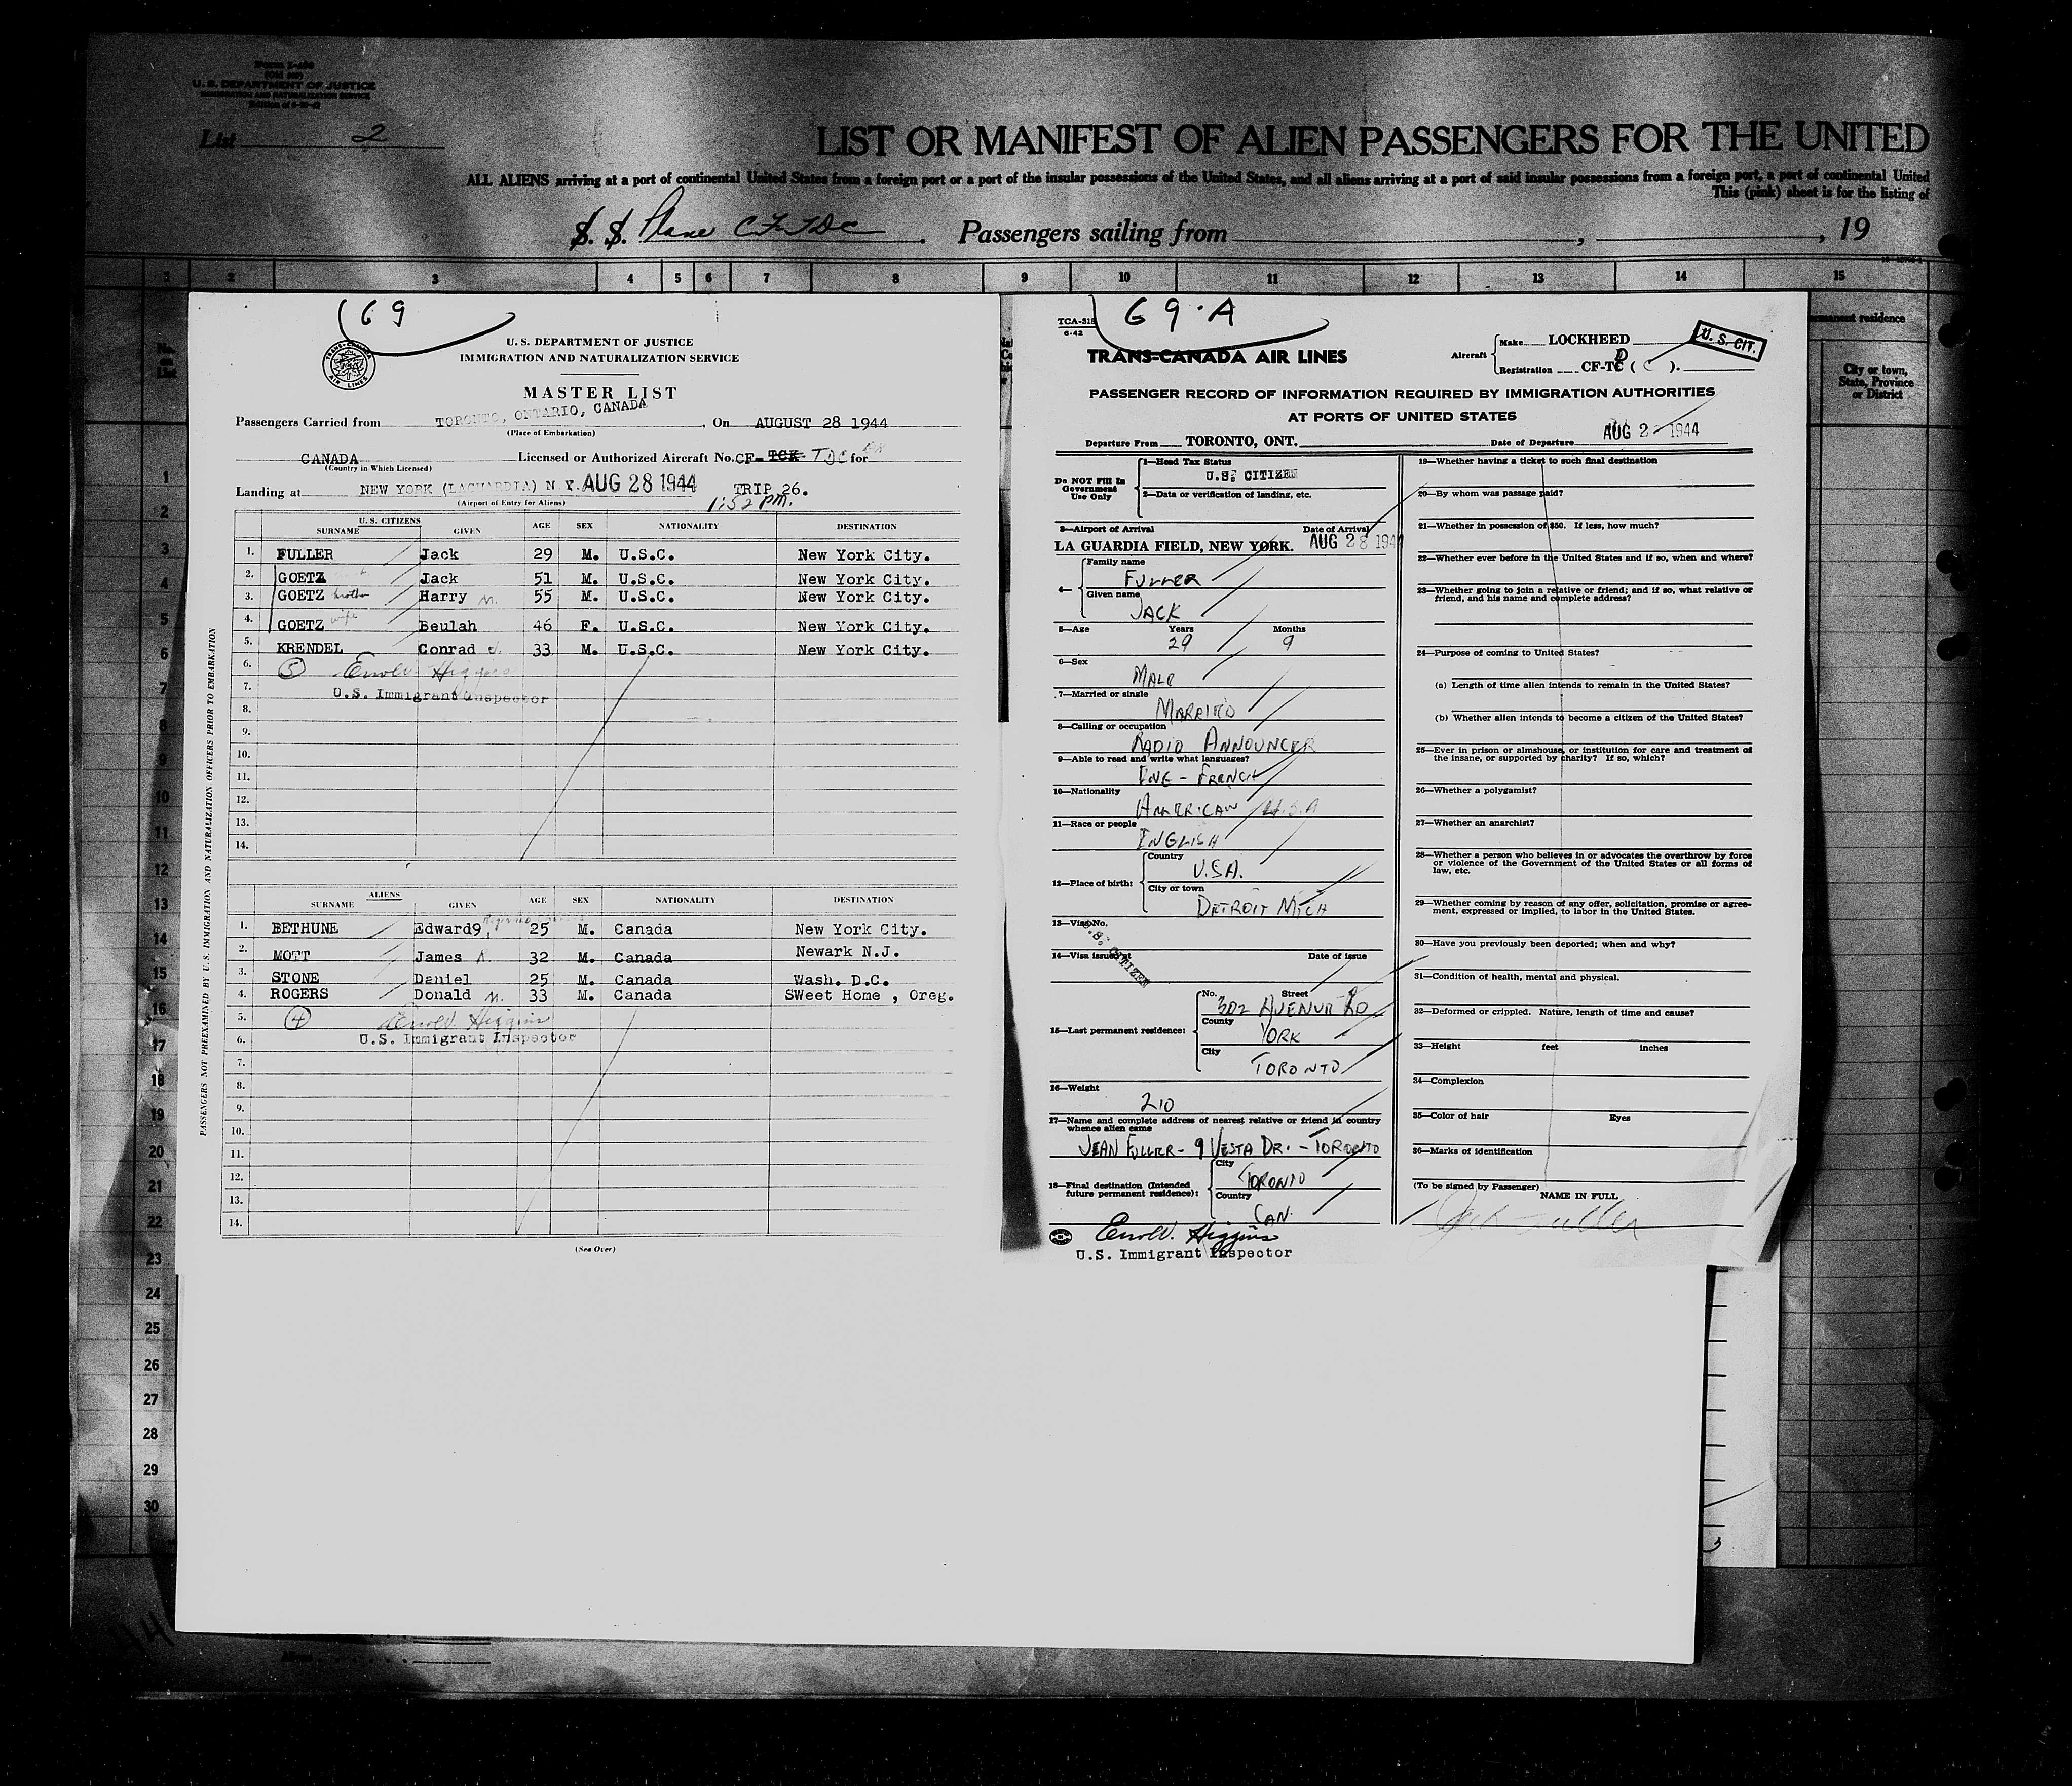 Form I-466
U. S. DEPARTMENT OF JUSTICE
IMMIGRATION AND NATURALIZATION SERVICE
List 2
LIST OR MANIFEST OF ALIEN PASSENGERS FOR THE UNITED
ALL ALIENS arriving at a port of continental United States from a foreign port or a port of the insular possessions of the United States, and all aliens arriving at a port of said insular possessions from a foreign port, a port of continental United
This (pink) sheet is for the listing of
S. S. Plane CF-TDC . Passengers sailing from , , 19
1 2 3 4 5 6 7 8 9 10 11 12 13 14 15
permanent residence
City or town,
State, Province
or District
1
2
3
4
5
6
7
8
9
10
11
12
13
14
15
16
17
18
19
20
21
22
23
24
25
26
27
28
29
30
69
TRANS-CANADA AIR LINES
U. S. DEPARTMENT OF JUSTICE
IMMIGRATION AND NATURALIZATION SERVICE
MASTER LIST
Passengers Carried from TORONTO, ONTARIO, CANADA , On AUGUST 28 1944
(Place of Embarkation)
CANADA Licensed or Authorized Aircraft No. CF- TCK TDC for
(Country in Which Licensed)
Landing at NEW YORK (LAGUARDIA) N Y. AUG 28 1944 TRIP 26.
(Airport of Entry for Aliens) 1:52 PM.
U. S. CITIZENS
SURNAME GIVEN AGE SEX NATIONALITY DESTINATION
1. FULLER Jack 29 M. U.S.C. New York City.
2. GOETZ Jack 51 M. U.S.C. New York City.
3. GOETZ brother Harry M. 55 M. U.S.C. New York City.
4. GOETZ wife Beulah 46 F. U.S.C. New York City.
5. KRENDEL Conrad J. 33 M. U.S.C. New York City.
6. 5 Errol V. Higgins
7. U.S. Immigrant Inspector
8.
9.
10.
11.
12.
13.
14.
ALIENS
SURNAME GIVEN AGE SEX NATIONALITY DESTINATION
1. BETHUNE Edward9, 25 M. Canada New York City.
2. MOTT James 32 M. Canada Newark N.J.
3. STONE Daniel 25 M. Canada Wash. D.C.
4. ROGERS Donald M. 33 M. Canada SWeet Home , Oreg.
5. 4 Errol V. Higgins
6. U.S. Immigrant Inspector
7.
8.
9.
10.
11.
12.
13.
14.
(See Over)
PASSENGERS NOT PREEXAMINED BY U.S. IMMIGRATION AND NATURALIZATION OFFICERS PRIOR TO EMBARKATION
69-A
TCA-518
6-42
TRANS-CANADA AIR LINES
Aircraft Make LOCKHEED
Registration CF-TC D ( C ).
U. S. CIT.
PASSENGER RECORD OF INFORMATION REQUIRED BY IMMIGRATION AUTHORITIES
AT PORTS OF UNITED STATES
Departure From TORONTO, ONT. Date of Departure AUG 2 1944
Do NOT Fill In
Government
Use Only
1—Head Tax Status
U.S. CITIZEN
2—Data or verification of landing, etc.
3—Airport of Arrival Date of Arrival
LA GUARDIA FIELD, NEW YORK. AUG 28 194
4— Family name
FULLER
Given name
JACK
5—Age Years Months
29 9
6—Sex
MALE
7—Married or single
MARRIED
8—Calling or occupation
RADIO ANNOUNCER
9—Able to read and write what languages?
ENG - FRENCH
10—Nationality
AMERICAN U.S.A
11—Race or people
ENGLISH
12—Place of birth: Country
U.S.A.
City or town
DETROIT MICH
13—Visa No.
U.S. CITIZEN
14—Visa issued at Date of issue
15—Last permanent residence: No. Street
302 AVENUE RD
County
YORK
City
TORONTO
16—Weight
210
17—Name and complete address of nearest relative or friend in country
whence alien came
JEAN FULLER - 9 VESTA DR. - TORONTO
18—Final destination (Intended
future permanent residence): City
TORONTO
Country
CAN.
Errol V. Higgins
U.S. Immigrant Inspector
19—Whether having a ticket to such final destination
20—By whom was passage paid?
21—Whether in possession of $50. If less, how much?
22—Whether ever before in the United States and if so, when and where?
23—Whether going to join a relative or friend; and if so, what relative or
friend, and his name and complete address?
24—Purpose of coming to United States?
(a) Length of time alien intends to remain in the United States?
(b) Whether alien intends to become a citizen of the United States?
25—Ever in prison or almshouse, or institution for care and treatment of
the insane, or supported by charity? If so, which?
26—Whether a polygamist?
27—Whether an anarchist?
28—Whether a person who believes in or advocates the overthrow by force
or violence of the Government of the United States or all forms of
law, etc.
29—Whether coming by reason of any offer, solicitation, promise or agree-
ment, expressed or implied, to labor in the United States.
30—Have you previously been deported; when and why?
31—Condition of health, mental and physical.
32—Deformed or crippled. Nature, length of time and cause?
33—Height feet inches
34—Complexion
35—Color of hair Eyes
36—Marks of identification
(To be signed by Passenger)
NAME IN FULL
Jack Fuller